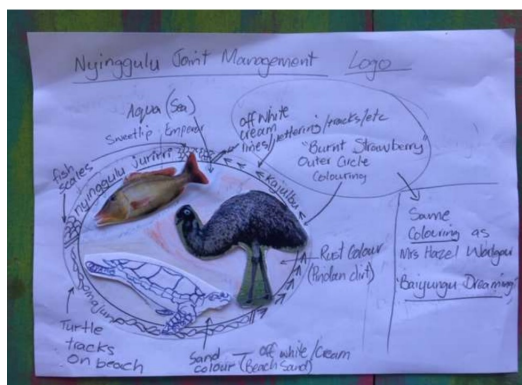 Nyinggulu Joint Management Logo
Aqua (Sea)
Sweetlip Emperor
off white
cream
lines/lettering/tracks/etc
"Burnt Strawberry"
Outer Circle
Colouring
fish
scales
nyinggulu jurrri
kajalbu
Same
Colouring as
Mrs Hazel Walgar
"Baiyungu Dreaming"
Rust Colour
(Pindan dirt)
majun
Turtle
tracks
on beach
Sand
colour
off white/cream
(Beach Sand)